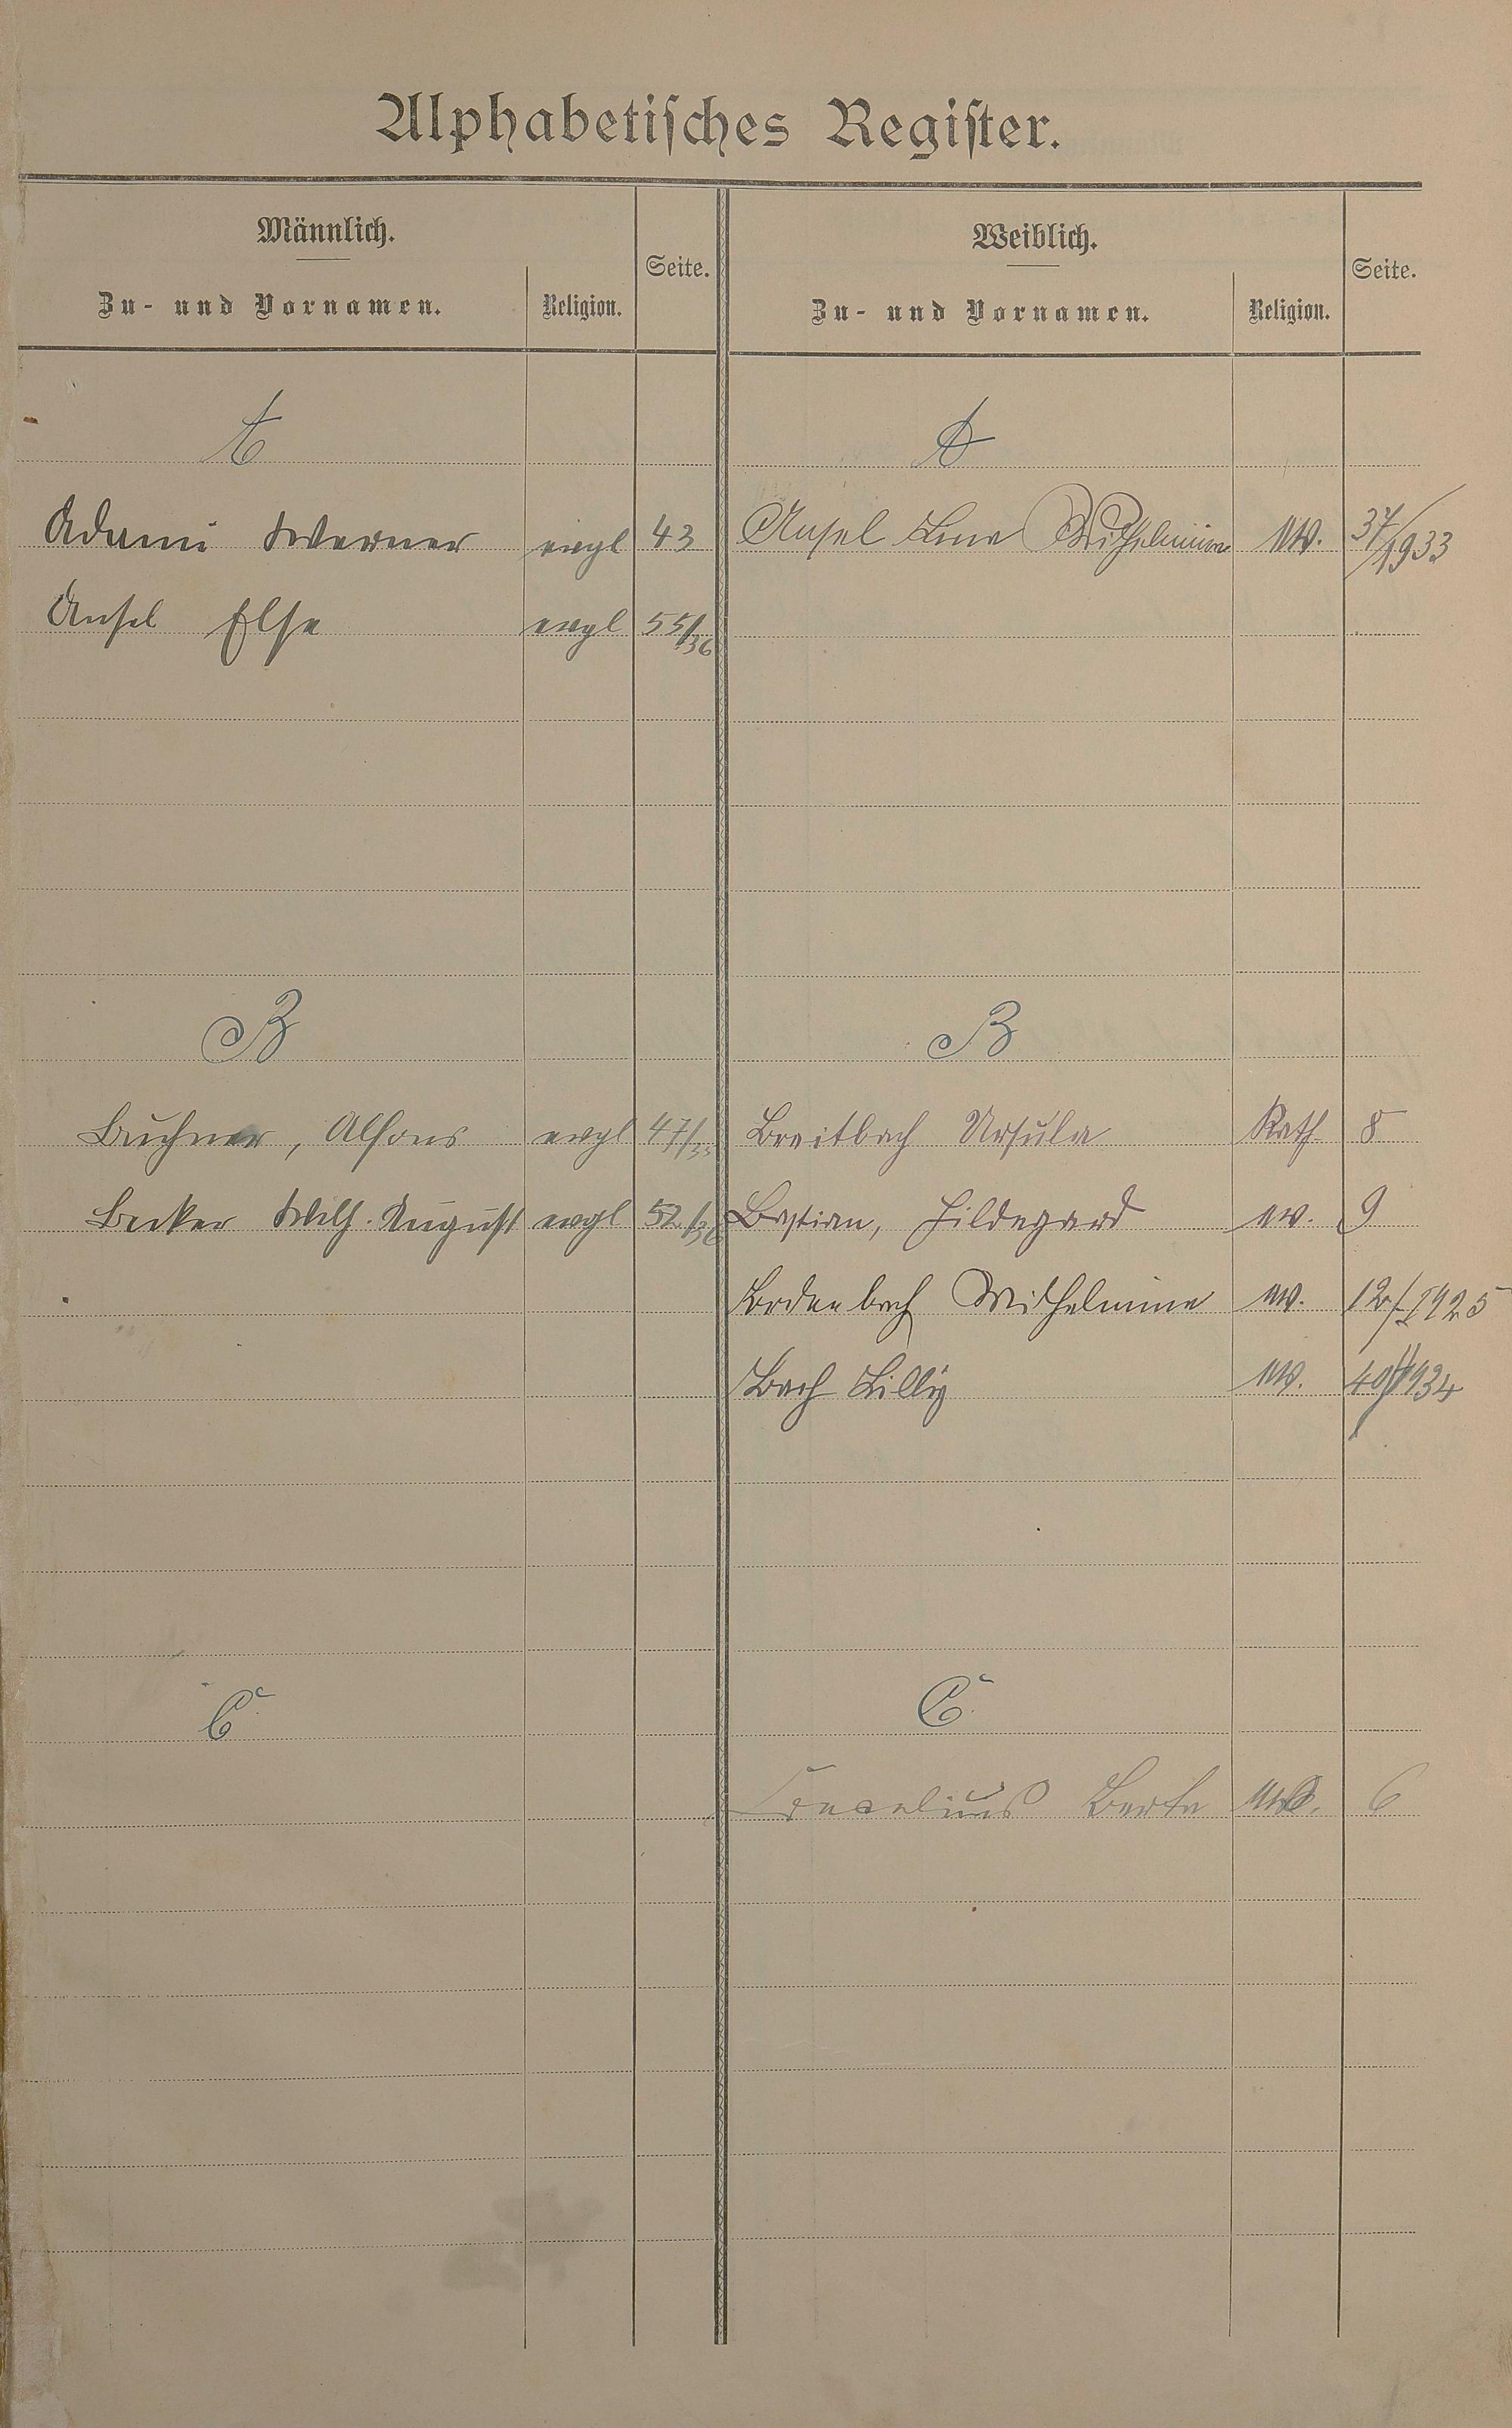 Alphabetisches Register.
Männlich.
Zu- und Vornamen.
Religion.
Seite.
Weiblich.
Zu- und Vornamen.
Religion.
Seite.
A
Adami Werner evgl 43
Ansel Else evgl 55/36
B
Buchner, Alfons evgl 47/35
Becker Wilh. August evgl 52/36
C
A
Ansel Lina Wilhelmine ev. 37/1933
B
Breitbach Ursula Kath 8
Bastian, Hildegard ev. 9
Bodenbach Wilhelmine ev. 12/1925
Bach Lilly ev. 40/1934
C
Berta 6